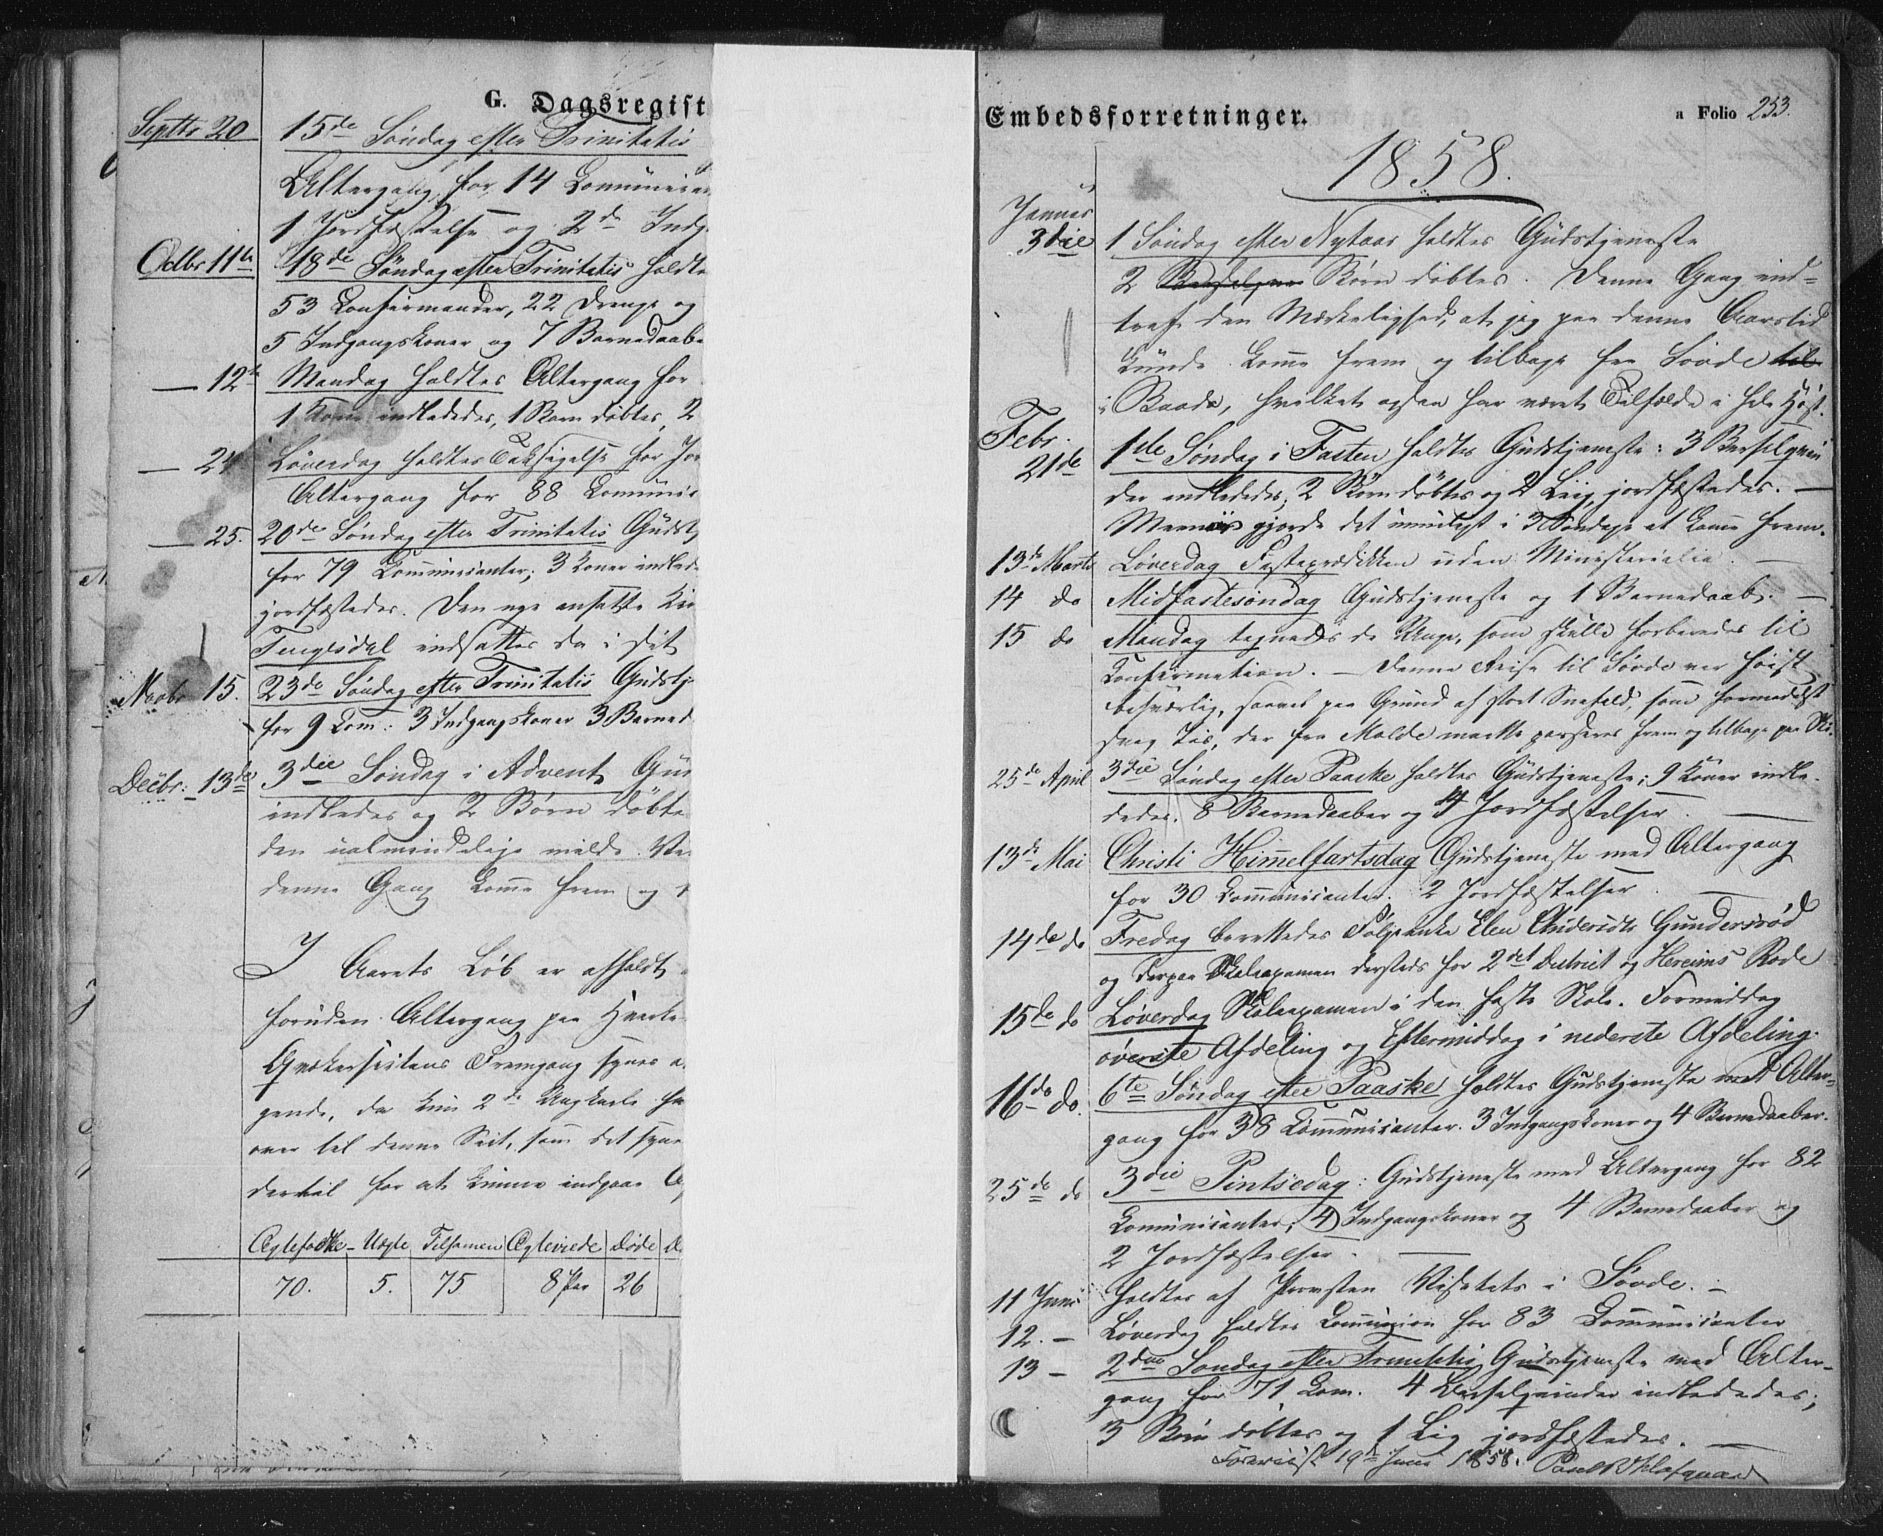 G. Dagsregist
Septbr 20
15de Søndag efter Trinitatis
Altergang for 14 Communican
1 Jordfæstelse og 2de Indg
Octbr 11te
18de Søndag efter Trinitatis holdte
53 Confirmander, 22 Drenge og
5 Indgangskoner og 7 Barnedaabe
— 12te
Mandag holdtes Altergang for
1 Kone indledes, 1 Barn døbtes, 2
— 24
Løverdag holdtes Taksigelse for
Altergang for 88 Communic
— 25.
20de Søndag efter Trinitatis Gudst
for 79 Communicanter; 3 Koner indled
jordfæstedes. Den nye ansatte
Tengesdal indsattes da i sit
Novbr 15.
23de Søndag efter Trinitatis Gudstj
for 9 Com: 3 Indgangskoner 3 Barned
Decbr: 13de
3die Søndag i Advent Gud
indledes og 2 Børn døbte
den ualmindelige milde Ve
denne Gang komme frem og
I Aarets Løb er afholdt
foruden Altergang paa
Qvækersectens Fremgang synes
gende, da kun 2de Ungkarle
over til denne Sect, som det syne
dertil for at kunne indgaae
Ægtefødte Uægte Tilsamen Ægteviede Døde
70. 5. 75 8 Par 26
Embedsforretninger.
a Folio 253.
1858.
Januar
3die
1 Søndag efter Nytaar holdtes Gudstjeneste
2 Børn døbtes. Denne Gang ind=
traf den Mærkelighed, at jeg paa denne Aarstid
kunde komme frem og tilbage fra Søvde
i Baade, hvilket ogsaa har været Tilfælde i hele Høst.
Febr.
21de
1ste Søndag i Fasten holdtes Gudstjeneste: 3 Barselqvin
der indledes, 2 Børn døbtes og 2 Liig jordfæstedes. —
gjorde det umuligt i 3 Søndage at komme frem.
13de Marts
Løverdag Fasteprædikken uden Ministerialia. —
14 do
Midfastesøndag Gudstjeneste og 1 Barnedaab. —
15 do
Mandag tegnedes de Unge, som skulle forberedes til
Confirmation. — Denne Reise til Søvde var høist
besværlig, saavel paa Grund af stort Snefald, som formedelst
svag Iis, der fra Molde maatte passeres frem og tilbage paa Ski.
25de April
3die Søndag efter Paaske holdtes Gudstjeneste; 9 Koner indle-
dedes. 8 Barnedaaber og 4 Jordfæstelser. —
13de Mai
Christi Himmelfartsdag Gudstjeneste med Altergang
for 30 Communicanter. 2 Jordfæstelser. —
14de do
Fredag berettedes Elen Gundersrød
og derpaa Skoleexamen dersteds for 2det District og Hereims Rode
15de do
Løverdag Skoleexamen i den faste Skole. Formiddag
øverste Afdeling og Eftermiddag i nederste Afdeling.
16de do.
6te Søndag efter Paaske holdtes Gudstjeneste med Alter=
gang for 38 Communicanter. 3 Indgangskoner og 4 Barnedaaber.
25de do
3die Pintsedag: Gudstjeneste med Altergang for 82
Communicanter; 4 Indgangskoner og 4 Barnedaaber og
2 Jordfæstelser. —
11 Juni
Holdtes af Provsten Visitats i Søvde. —
12. —
Løverdag holdtes Communion for 83 Communicanter
13 —
2den Søndag efter Trinitatis Gudstjeneste med Alter-
gang for 71 Com. 4 Barselqvinder indledes;
3 Børn døbtes og 1 Lig jordfæstedes. —
Foreviist 19de Juni 1858.